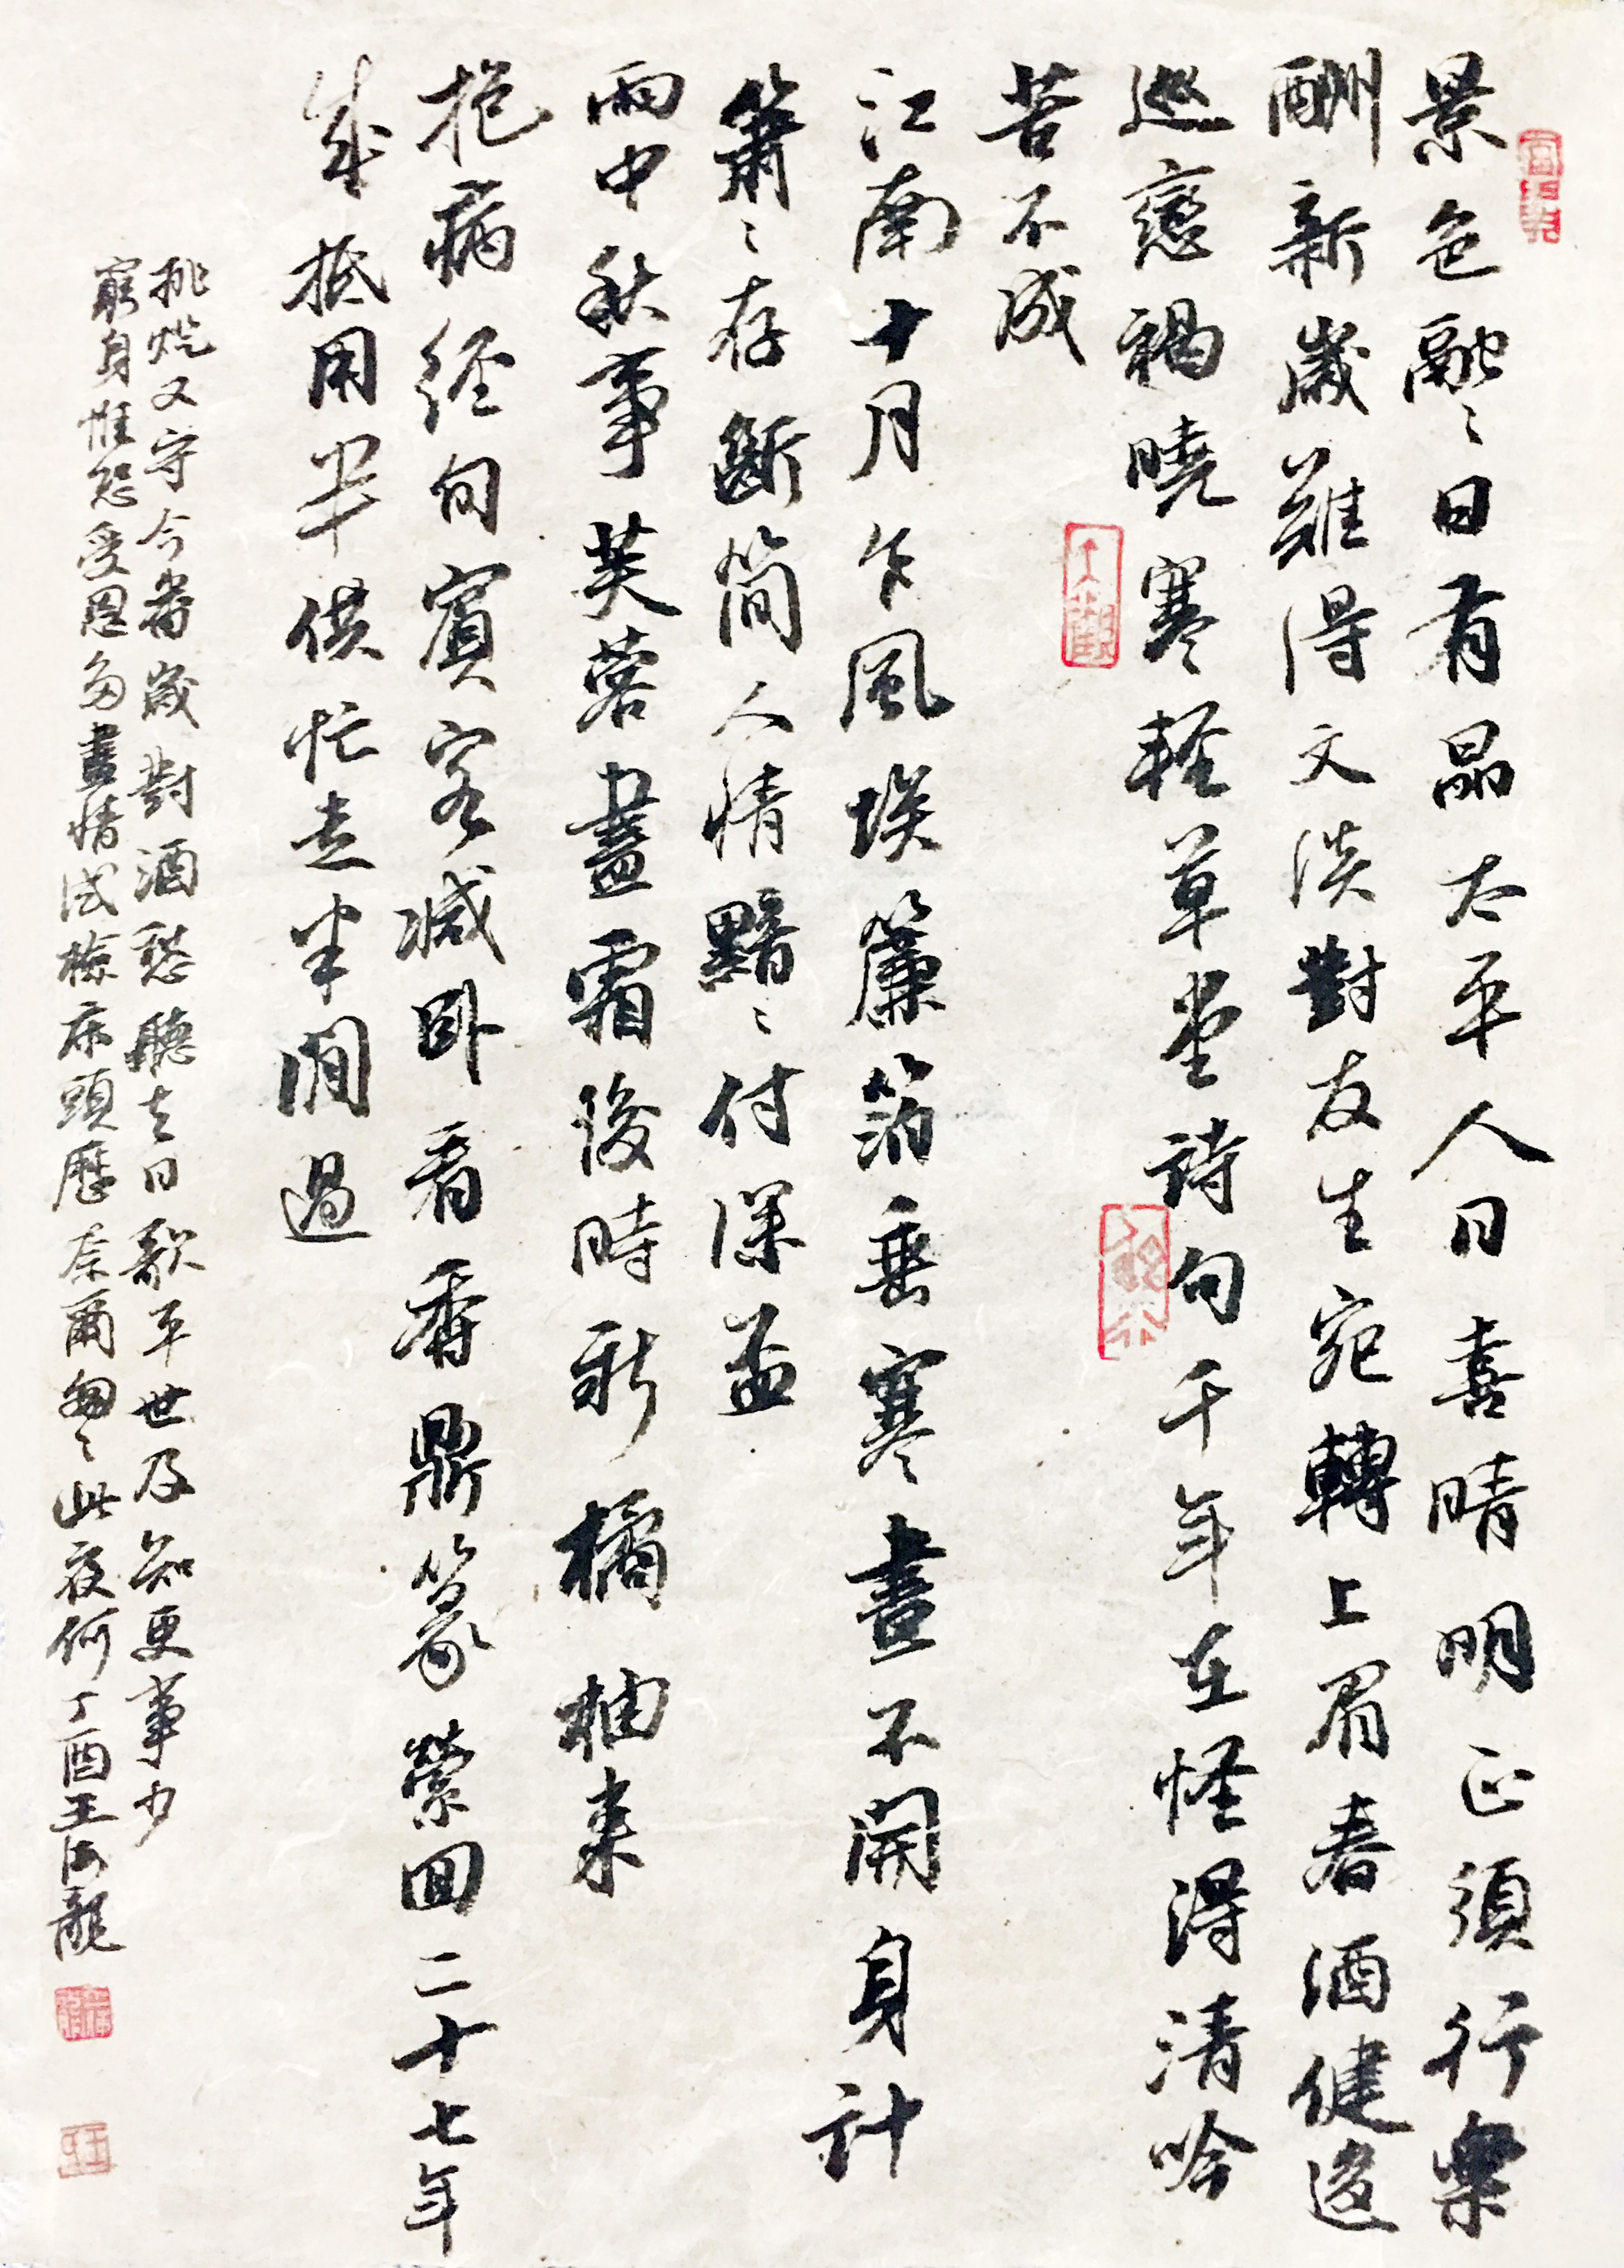 景色融〻日有晶太平人日喜晴明正須行樂
酬新歲難得文淡對友生宛轉上眉春酒健逡
巡戀褐曉寒輕草堂詩句千年在怪得清吟
苦不成
江南十月乍風埃簾箔垂寒晝不開身計
簫〻存斷簡人情黯〻付深盃
雨中秋事芙蓉盡霜後時新橘柚来
抱病経旬賓客減卧看香鼎篆縈回二十七年
成抵用半供忙走半閒過
挑燈又守今番歲對酒愁聽去日歌平世及知更事少
窮身惟恐受恩多盡情試撿床頭曆奈爾匆〻此夜何丁酉王海龍